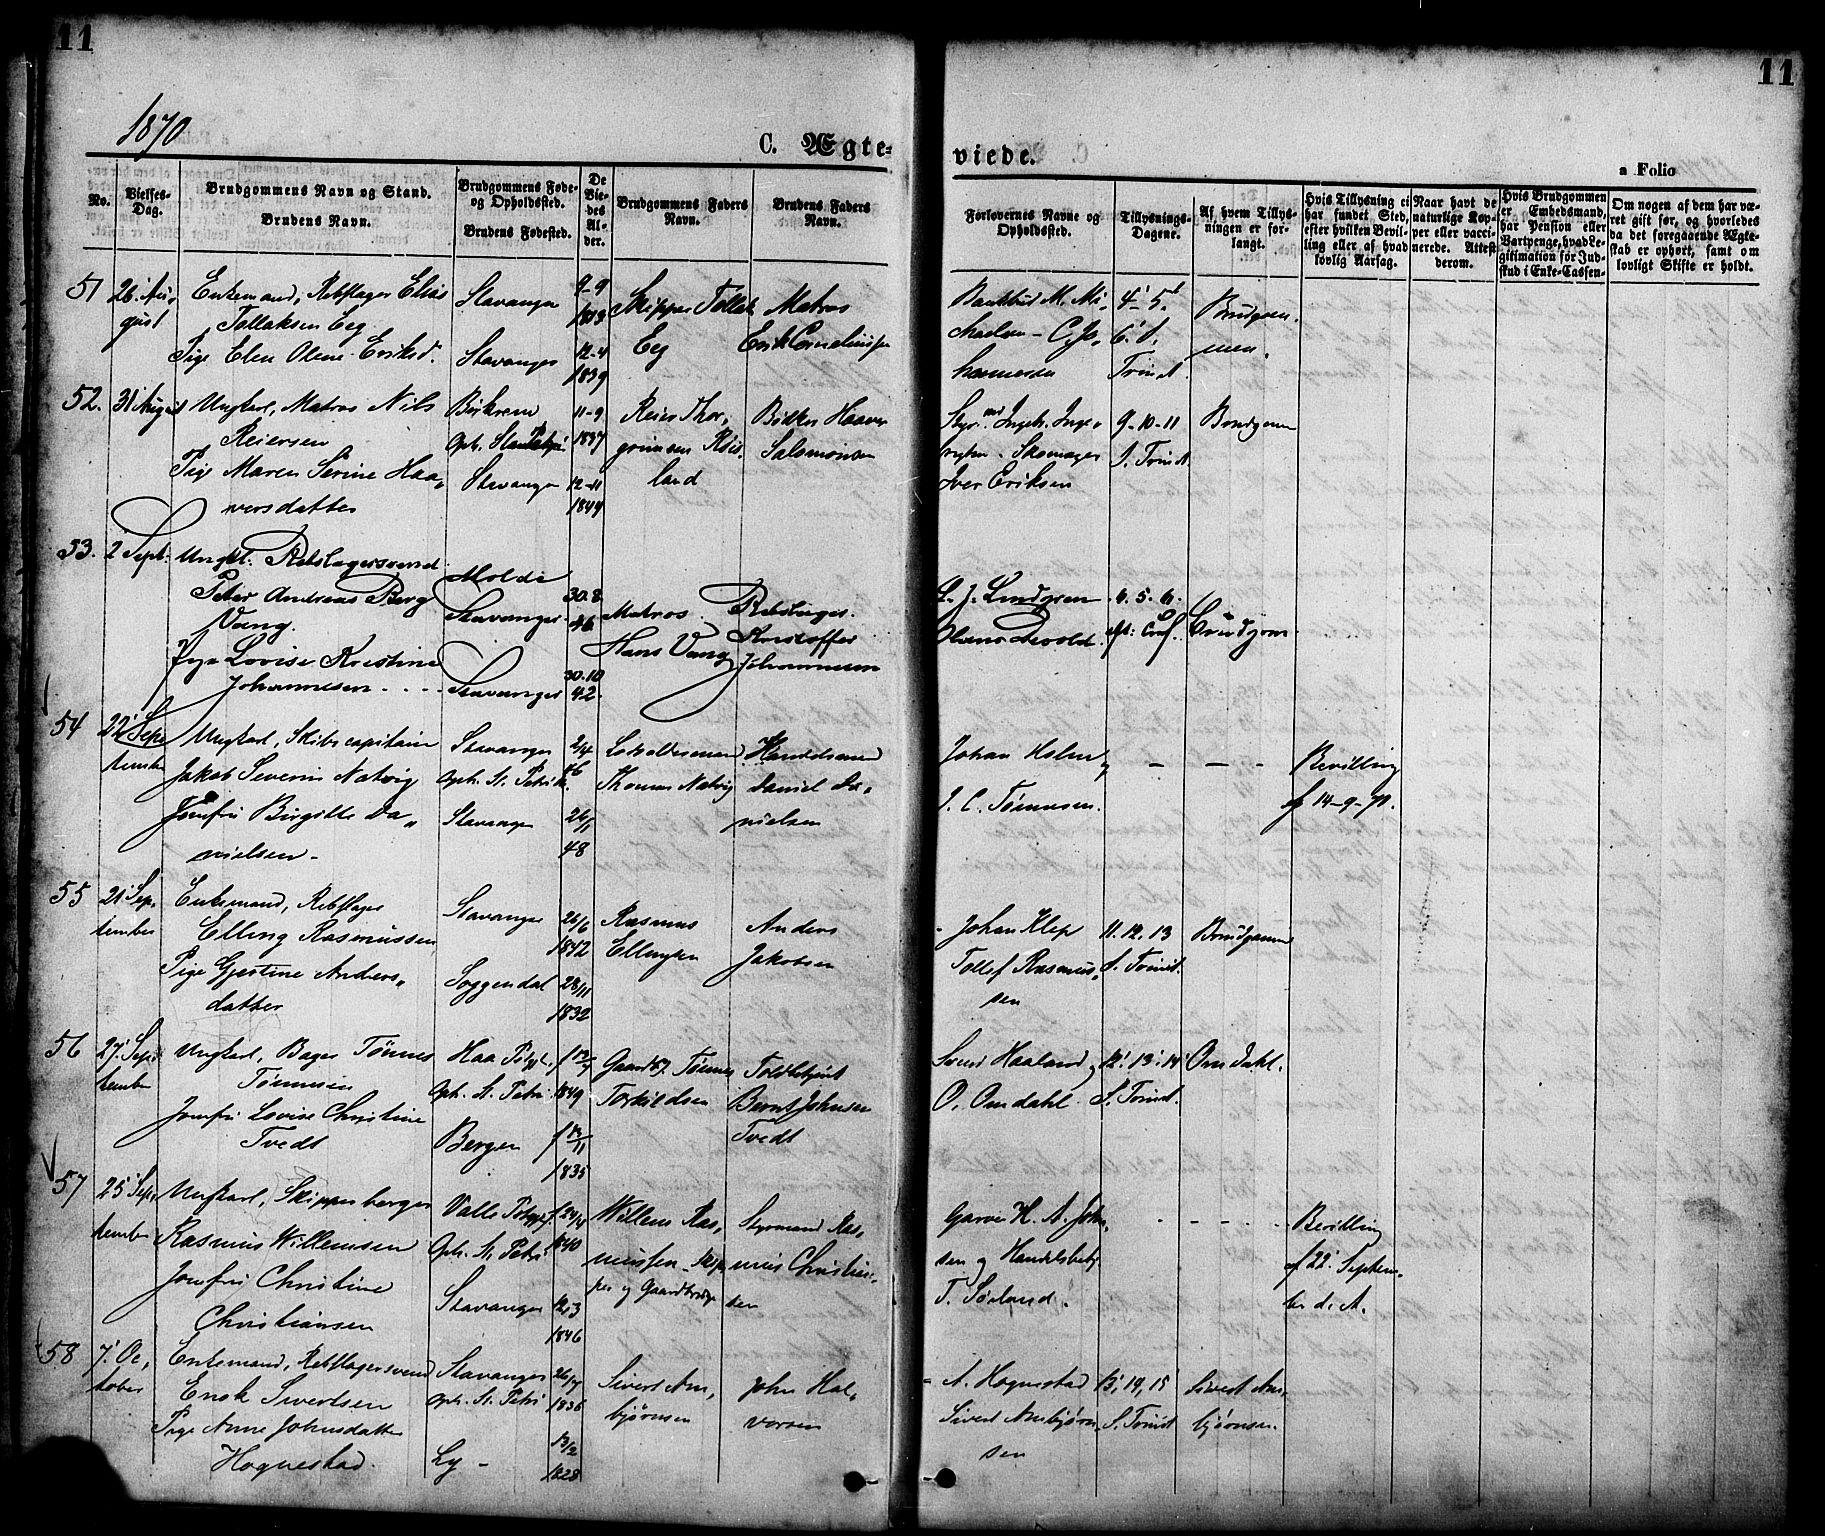 11
11
1870
C. Ægte-
viede.
a Folio
No.
Vielses-
Dag.
Brudgommens Navn og Stand.
Brudens Navn.
Brudgommens Føde-
og Opholdssted.
Brudens Fødested.
De
Vie-
des
Al-
der.
Brudgommens Faders
Navn.
Brudens Faders
Navn.
Forlovernes Navne og
Opholdssted.
Tillysnings-
Dagene.
Af hvem Tillys-
ningen er for-
langt.
Hvis Tillysning ei
har fundet Sted,
efter hvilken Bevil-
ling eller af hvad
lovlig Aarsag.
Naar havt de
naturlige Kop-
per eller vacci-
nerede. Attest
derom.
Hvis Brudgommen
er Embedsmand,
har Pension eller
Vartpenge, hvad Le-
gitimation for Ind-
skud i Enke-Cassen.
Om nogen af dem har væ-
ret gift før, og hvorledes
da det foregaaende Ægte-
skab er ophørt, samt om
lovligt Skifte er holdt.
51
26. Au-
gust
Enkemand, Rebslager Elias
Tollaksen Eeg
Pige Elen Olene Eriksd.
Stavanger
Stavanger
9-9
1813
12-4
1839
Skipper Tollak
Eeg
Matros
Erik Corneliussen
4' 5'
6' S.
Trinit.
Brudgom-
men
52.
31 August
Ungkarl, Matros Nils
Reiersen
Pige Maren Serine Haa-
versdatter
Opb.
Stavanger
11-9
1837
12-11
1844
Reier Thor-
grimsen Røis-
land
Bødker Haaver
Salomonsen
Skomager
Iver Eriksen
9-10-11
S. Trinit.
Brudgom
53.
2 Sept.
Ungk. Rebslagersvend
Peter Andreas Berg
Vang.
Pige Lovise Kristine
Johannesen
Molde
Stavanger
Stavanger
30.8
46
30.10
42.
Matros
Hans Vang
Rebslager.
Kristoffer
Johannesen
L. J. Lindgren
4. 5. 6.
Brudgom
54
22' Sep-
tember
Ungkarl, Skibscapitain
Jakob Severin Natvig
Jomfru Birgitte Da-
nielsen
Stavanger
Oph. St. Petri
Stavanger
2/4
46
26/11
48
Thomas Natvig
Handelsmand
Daniel Da-
nielsen
Johan Holm
og
I. C. Tønnesen.
Bevilling
af 14-9-70.
55
21' Sep-
tember
Enkemand, Rebslager
Elling Rasmussen
Pige Gjertine Anders-
datter
Stavanger
Soggendal
26/6
1842
28/11
1832
Rasmus
Ellingsen
Anders
Jakobsen
Johan Klep
Tollef Rasmus-
sen
11. 12. 13
S. Trinit.
Brudgommen
56
27' Sep-
tember
Ungkarl, Bager Tønnes
Tønnesen
Jomfru Lovise Christine
Tvedt
Haa
Oph. St. Petri
Bergen
1849
1835
Gaardbr. Tønnes
Torkildsen
Toldbetjent
Bernt Johnsen
Tvedt
Svend Haaland og
O. Omdahl
12' 13' 14'
S. Trinit.
Omdahl.
57
25' Sep-
tember
Ungkarl, Skipperborger
Rasmus Willemsen
Jomfru Christine
Christiansen
Valle
Oph. St. Petri
Stavanger
f. 24/4
1840
12/3
1846
Willem Ras-
mussen - Skip-
per og Gaardbruger
Styrmand Ras-
mus Christian-
sen
Garver H. A. John-
sen og Handelsbetj.
T. Sørland.
Bevilling
af 22' Septem-
ber d. A.
58
7' Oc-
tober
Enkemand, Rebslagersvend
Enok Sivertsen
Pige Anne Johnsdatter
Hognestad.
Stavanger
Oph. St. Petri
Ly
26/7
1836
13/2
1828
Sivert Arn-
bjørnsen
John Hal-
vorsen
A. Hognestad
Sivert Arnbjørn-
sen
13, 14, 15
S. Trinit.
Sivert Arn-
bjørnsen